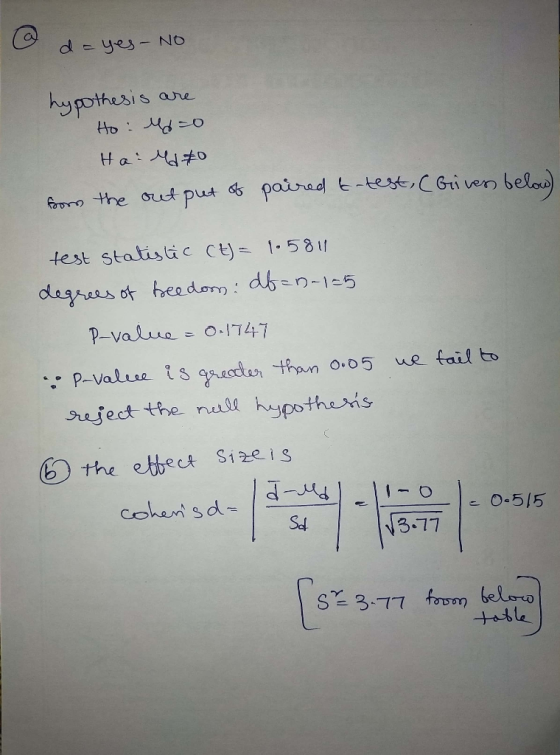 (a) d = yes - NO
hypothesis are
Ho : Md = 0
Ha : Md ≠ 0
from the out put of paired t-test, (Given below)
test statistic (t) = 1.5811
degrees of freedom : df = n-1 = 5
P-value = 0.1747
∵ P-value is greater than 0.05 we fail to
reject the null hypothesis
(b) the effect size is
cohen's d = | d̄ - Md / Sd | = | 1 - 0 / √3.77 | = 0.515
[S² = 3.77 from below
table]